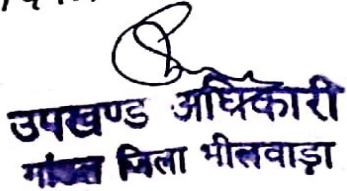 उपखण्ड अधिकारी
जिला भीलवाड़ा